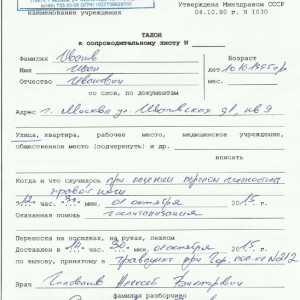 наименование учреждения
Утверждена Минздравом СССР
04.10.80 г. N 1030
ТАЛОН
к сопроводительному листу N
Фамилия Иванов
Имя Иван
Отчество Иванович
Возраст
лет 10.10.1985г.р
со слов, по документам
Адрес г. Москва ул. д1, кв 9
Улица, квартира, рабочее место, медицинское учреждение,
общественное место (подчеркнуть) и др.
вписать
Когда и что случилось при падении перелом
правой ноги
"12" час. "30" мин. 01 октября 2015 г.
Оказанная помощь госпитализация
Переноска на носилках, на руках, пешком
Доставлен в "12" час. "30" мин. 01 октября 2015 г.
по вызову, принятому в травмпункт при Гор. пол-ке №212
Врач Алексей Викторович
фамилия разборчиво